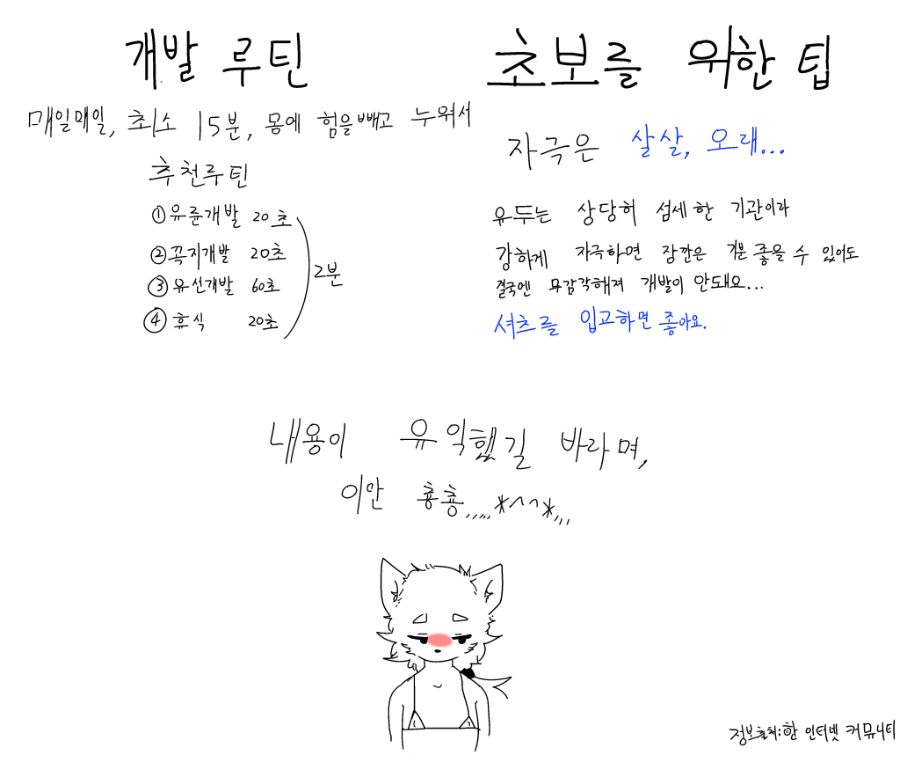 개발 루틴
매일매일, 최소 15분, 몸에 힘을 빼고 누워서
추천루틴
① 유륜개발 20초
② 꼭지개발 20초
③ 유선개발 60초
④ 휴식 20초
2분
초보를 위한 팁
자극은 살살, 오래...
유두는 상당히 섬세한 기관이라
강하게 자극하면 잠깐은 기분 좋을 수 있어도
결국엔 무감각해져 개발이 안돼요...
셔츠를 입고하면 좋아요.
내용이 유익했길 바라며,
이만 총총,,,,,*^^*,,,
정보출처:한 인터넷 커뮤니티